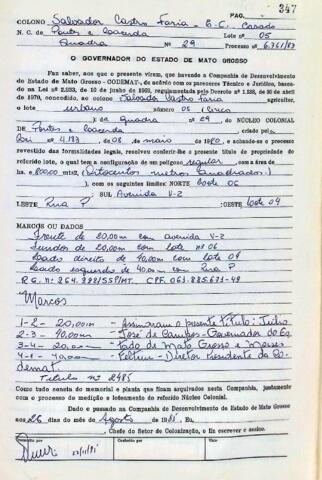 PÁG. 347
COLONO Salvador Castro Faria - E.C. Casado
N. C. de Pontes e Lacerda LOTE Nº 05
Quadra Nº 29 Processo nº 6.761/83
O GOVERNADOR DO ESTADO DE MATO GROSSO
Faz saber, aos que o presente virem, que havendo a Companhia de Desenvolvimento
do Estado de Mato Grosso - CODEMAT-, de acôrdo com os pareceres Técnico e Jurídico, basea-
do na Lei nº 2.933, de 10 de junho de 1969, regulamentada pelo Decreto nº 1.138, de 30 de abril
de 1970, concedido, ao colono Salvador Castro Faria agricultor,
o lote urbano número 05 (cinco)
da quadra nº 29 do NÚCLEO COLONIAL
de Pontes e Lacerda criado pela
Lei 4.183, de 08, de maio 1980, e achando-se o processo
revestido das formalidades legais, resolveu conferir-lhe o presente título de propriedade do
referido lote, o qual tem a configuração de um polígono regular com a área de
(Oitocentos metros quadrados)
com os seguintes limites: NORTE Lote 06
SUL Avenida V-2
LESTE Rua P OESTE Lote 04
MARCOS OU DADOS
Frente de 20,00m com avenida V-2
Fundos de 20,00m com lote nº 06
Lado direito de 40,00m com lote 04
Lado esquerdo de 40,00m com Rua P
Marcos
1-2 - 20,00m - Assinaram o presente título: Júlio
2-3 - 40,00m - José de Campos - Governador do Es
3-4 - 20,00m - tado de Mato Grosso e
4-1 - 40,00m - Feltrin - Diretor Presidente da Co
demat.
Título nº 2485
Como tudo consta do memorial e planta que ficam arquivados nesta Companhia, juntamente
com o processo de medição e loteamento do referido Núcleo Colonial.
Dado e passado na Companhia de Desenvolvimento do Estado de Mato Grosso
aos 26 dias do mês de Agosto de 19
, Chefe do Setor de Colonização, o fiz escrever e assino.
Conferido por
Escrito por